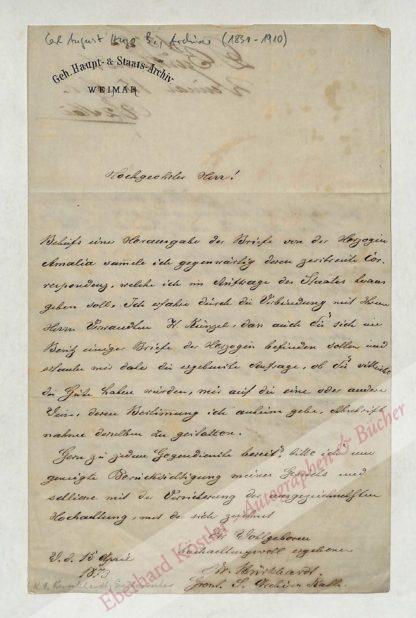 Carl August Hugo (1831-1910)
Geh. Haupt- & Staats-Archiv
WEIMAR
Hochgeehrter Herr!
Behufs einer Herausgabe der Briefe von der Herzogin
Amalia samle ich gegenwärtig deren zerstreute Cor-
respondenz, welche ich im Auftrage des Staates heraus
geben soll. Ich erfahre durch die Verbindung mit Ihrem
Herrn Verwandten H. Künzel, dass auch Sie sich im
Besitz einiger Briefe der Herzogin befinden sollen und
erlaube mir daher die ergebenste Anfrage, ob Sie vielleicht
die Güte haben würden, mir auf die eine oder andere
Weise, deren Bestimmung ich anheim gebe, Abschrift
nahme derselben zu gestatten.
Gern zu jedem Gegendienste bereit bitte ich um
geneigte Berücksichtigung meines Gesuchs und
schliesse mit der Versicherung der ausgezeichnetsten
Hochachtung, mit der sich zeichnet
Ew. Wohlgeboren
hochachtungsvoll ergebener
Dr. Burkhardt
W. d. 15 April
1873
Eberhard Köstler - Autographen & Bücher